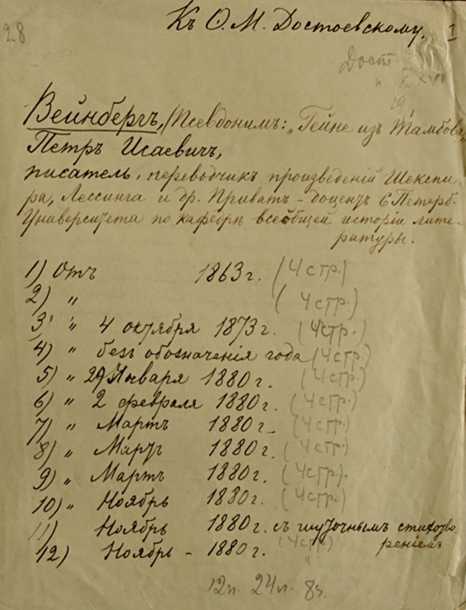 28
Къ Ѳ. М. Достоевскому. 1
Дост
Вейнбергъ, (Псевдонимъ: „Гейне изъ Тамбова",
Петръ Исаевичъ,
писатель, переводчикъ произведеній Шекспи-
ра, Лессинга и др. Приватъ-доцентъ С. Петерб.
Университета по кафедрѣ всеобщей исторіи лите-
ратуры.
1) Отъ 1863 г. (4 стр.)
2) „ (4 стр.)
3) „ 4 октября 1873 г. (4 стр.)
4) „ безъ обозначенія года (4 стр.)
5) „ 29 Января 1880 г. (4 стр.)
6) „ 2 февраля 1880 г. (4 стр.)
7) „ Мартъ 1880 г. (4 стр.)
8) „ Мартъ 1880 г. (4 стр.)
9) „ Мартъ 1880 г. (4 стр.)
10) „ Ноябрь 1880 г. (4 стр.)
11) Ноябрь 1880 г. съ шуточнымъ стихотво
реніемъ
12) Ноябрь - 1880 г. (4 стр.)
12п. 24л.